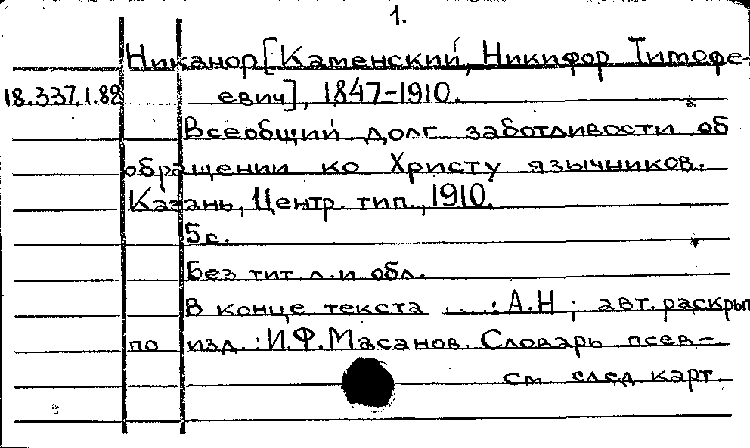 1.
Никанор [Каменский, Никифор Тимофе-
18.337.1.88 евич], 1847-1910.
Всеобщий долг заботливости об
обращении ко Христу язычников.
Казань, Центр. тип., 1910.
5с.
Без тит. л. и обл.
В конце текста ...: А.Н ; авт. раскрыт
по изд.: И.Ф.Масанов. Словарь псев-
см след карт.